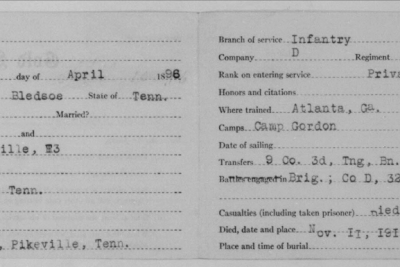 day of April 1896
Bledsoe State of Tenn.
Married?
and
ille, T3
Tenn.
, Pikeville, Tenn.
Branch of service Infantry
Company D Regiment
Rank on entering service Priv
Honors and citations
Where trained Atlanta, Ga.
Camps Camp Gordon
Date of sailing
Transfers 9 Co. 3d, Tng, Bn.
Battles engaged in Brig.; Co D, 32
Casualties (including taken prisoner) Died
Died, date and place Nov. 11, 191
Place and time of burial